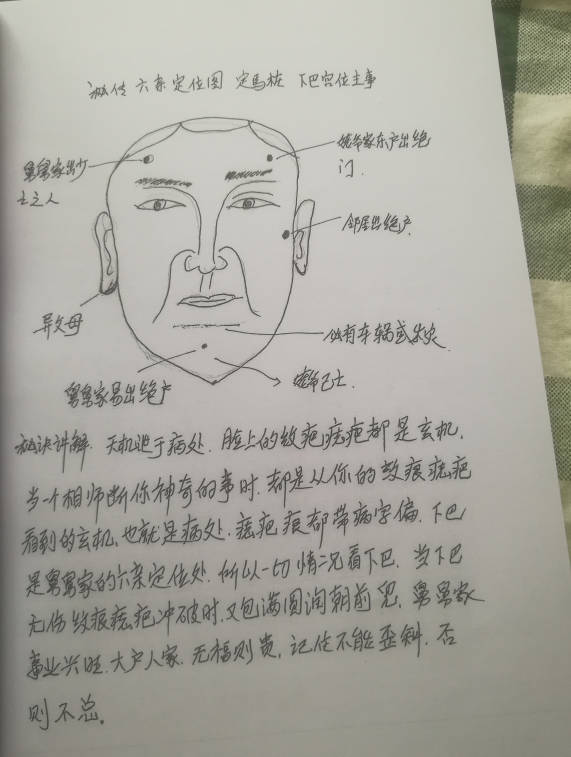 秘传 六亲定位图 定马桩 下巴宫位主事
舅舅家出少
亡之人
家东户出绝
门.
邻居出绝户
异父母
有车祸或水灾
舅舅家易出绝户
已亡
秘诀讲解. 天机泄于病处. 脸上的纹疤痣疤都是玄机.
当一个相师断你神奇的事时. 都是从你的纹痕痣疤
看到的玄机, 也就是病处. 痣疤痕都带病字偏. 下巴
是舅舅家的六亲定位处. 所以一切情况看下巴. 当下巴
无伤纹痕痣疤冲破时. 又包满圆润朝前兜. 舅舅家
事业兴旺. 大户人家. 无福则贵, 记住不能歪斜. 否
则不总.